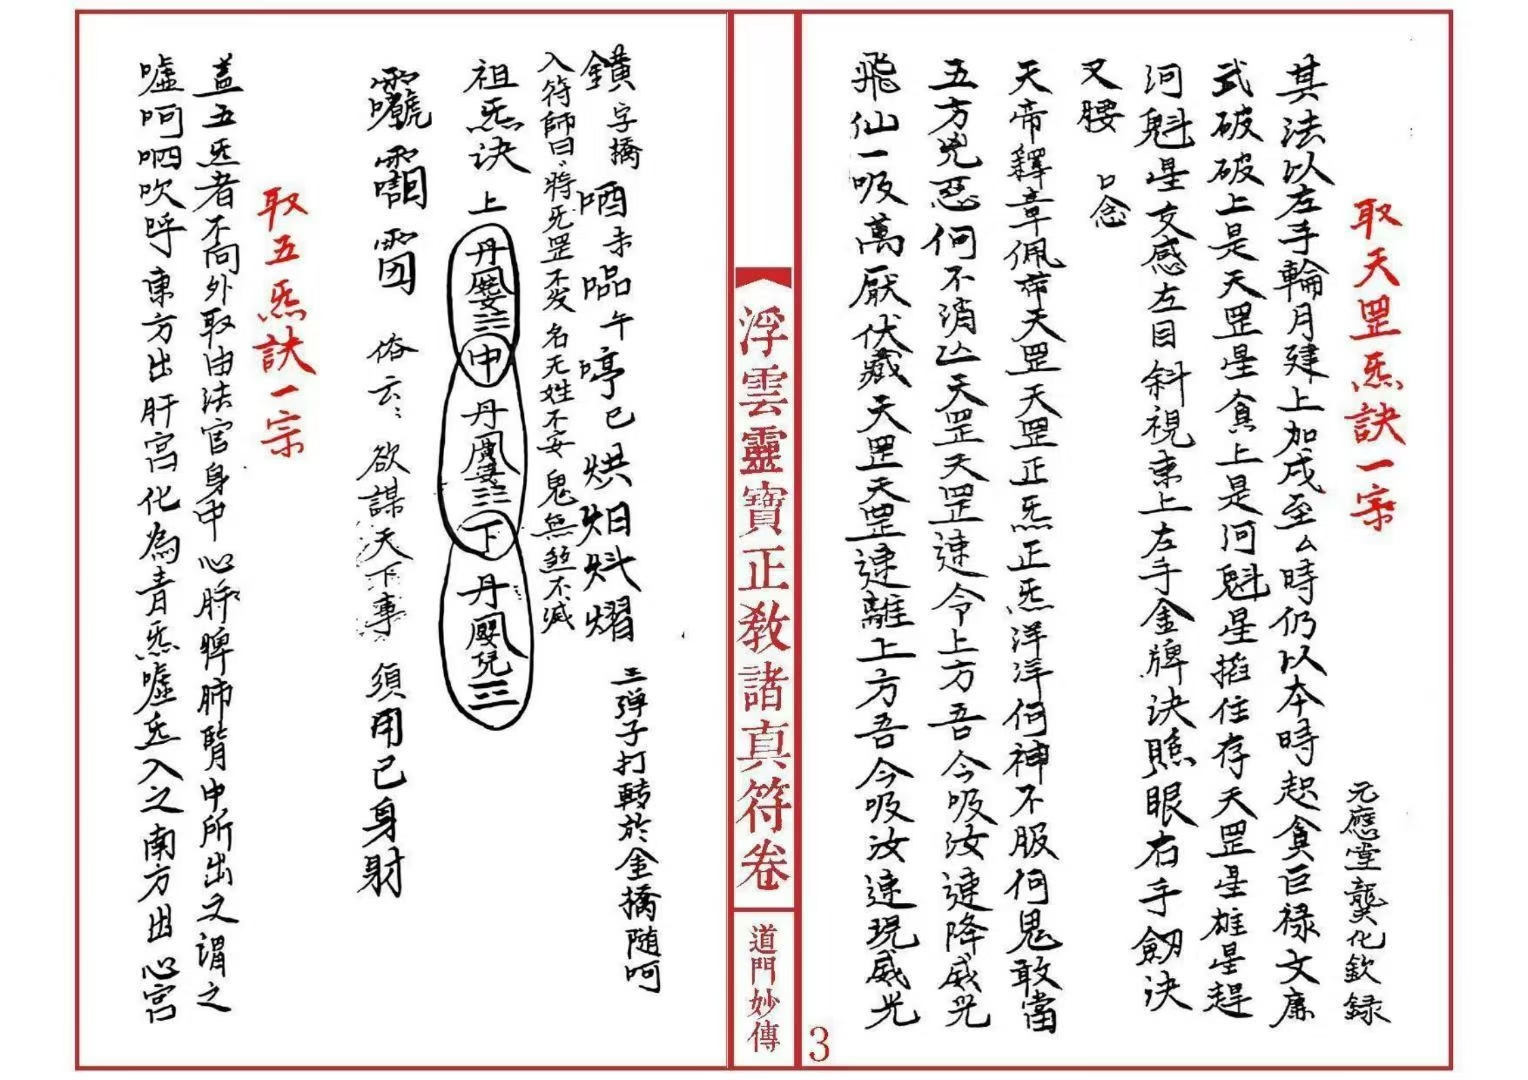 取天罡炁訣一宗
元應堂龔化欽録
其法以左手輪月建上加戌至么時仍以本時起貪巨禄文廉
武破破上是天罡星貪上是河魁星掐住存天罡星雄星趕
河魁星交感左目斜視東上左手金牌诀照眼右手劔诀
又腰 口念
天帝釋章佩帝天罡天罡正炁正炁洋洋何神不服何鬼敢當
五方兇惡何不消亾天罡天罡速令上方吾今吸汝速降威光
飛仙一吸萬厭伏藏天罡天罡速離上方吾今吸汝速現威光
浮雲靈寶正教諸真符卷
道門妙傳
3
鐄字搞 哂未㗊午 啍巳 烘烜炓熠 三弹子打转於金搞随呵
入符師曰將炁罡不发名无姓不安鬼無煞不滅
祖炁诀 上 丹 中 丹 下 丹
俗云：欲謀天下事 須用已身射
取五炁訣一宗
盖五炁者不向外取由法官身中心肝脾肺腎中所出之谓之
嘘呵呬吹呼東方出肝宫化為青炁嘘炁入之南方出心宫